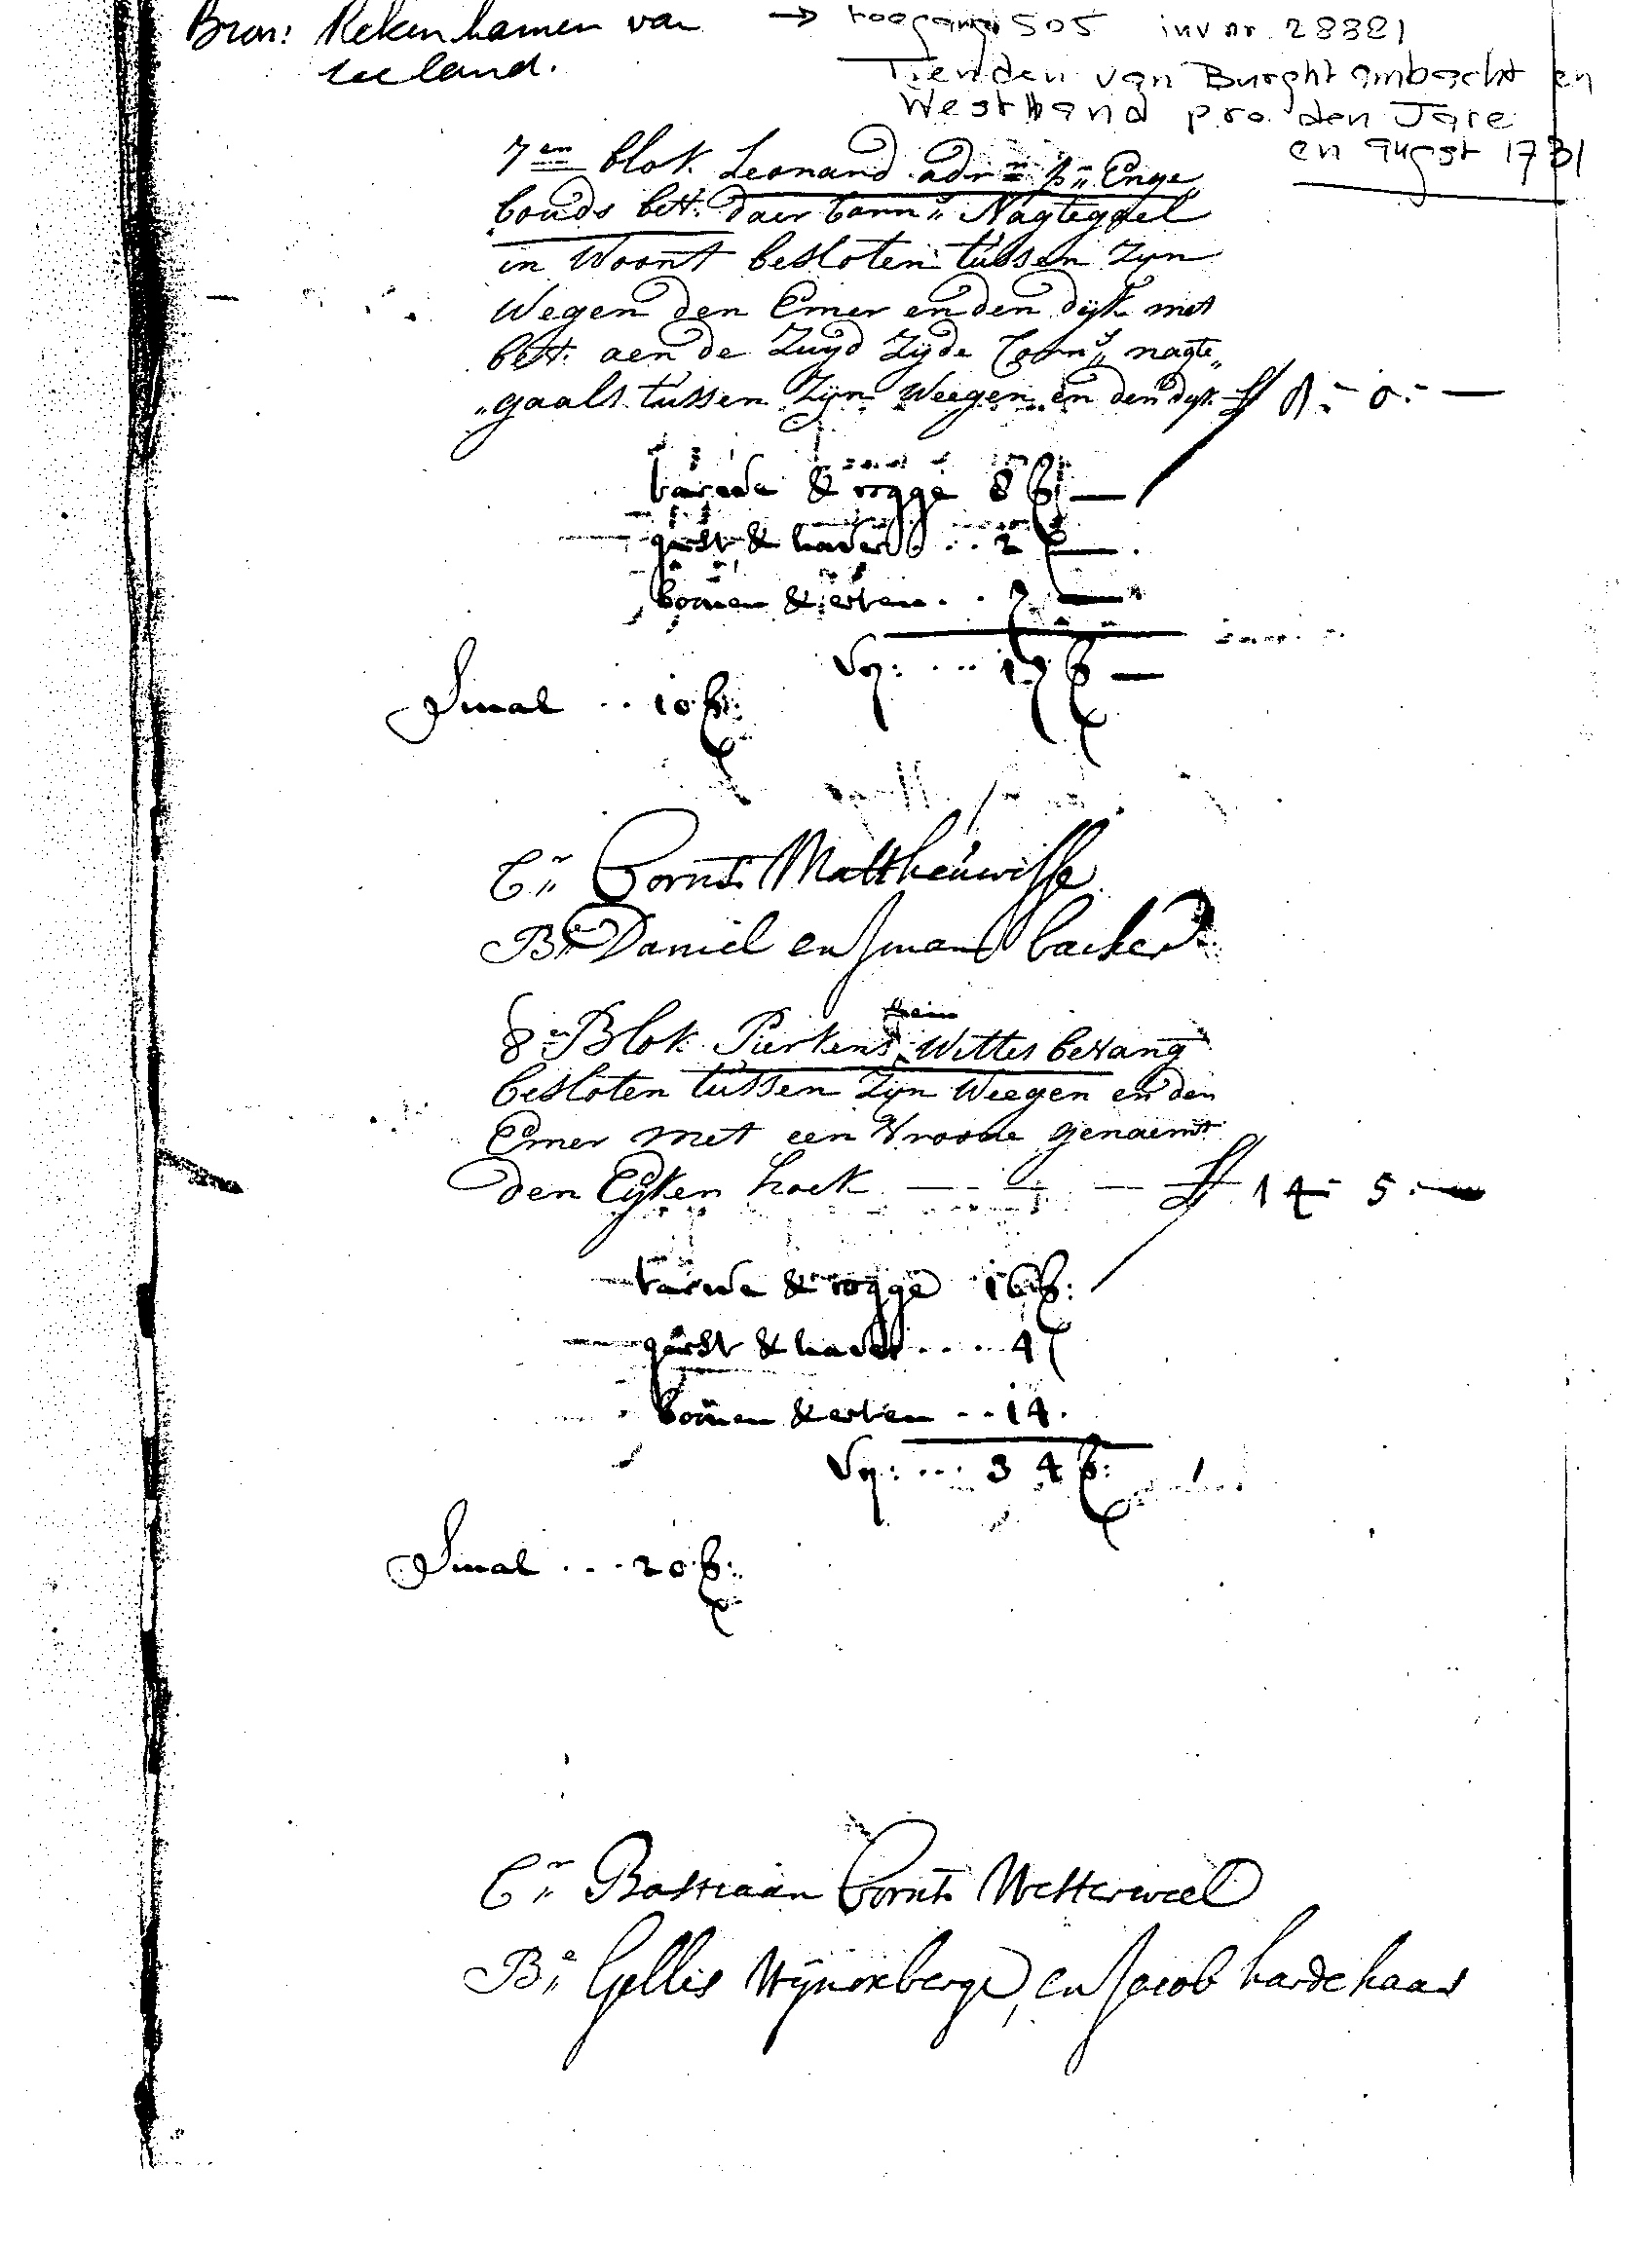 Bron: Rekenkamer van → toegang 505 inv nr. 28821
Zeeland. Tienden van Burght ambacht en
Westland pro den Jare
en august 1731
7en blok Leonard adr= p„ Enge„
bouds bett. daer Corn„s Nagtegael
in Woont besloten tussen zyn
Wegen den Emer en den dyk met
bett. aen de Zuyd Zyde Corn„s nagte„
„gaals tussen Zyn Weegen en den dyk £ 8:- 0:- —
tarwe & rogge 8 ß —
garst & haver ... 2 —
boonen & erten . . 7 —
Vyf: ... 17 ß —
Smal .. 10 ß:
C„r Corns. Mattheuwisse
B„e Daniel en Jman backer
8en Blok Pierkens Wittes behang
besloten tussen Zyn Weegen en den
Emer met een Vroone genaemt
den Eyken hoek — — — £ 14- 5 -
tarwe & rogge 16 ß:
garst & haver .... 4
boonen & erten .. 14.
... 34 ß:
Smal ... 20 ß:
C„r Bastiaan Corns. Westerweel
B„e Gellis Wynoxberge, en Jacob hardehaas